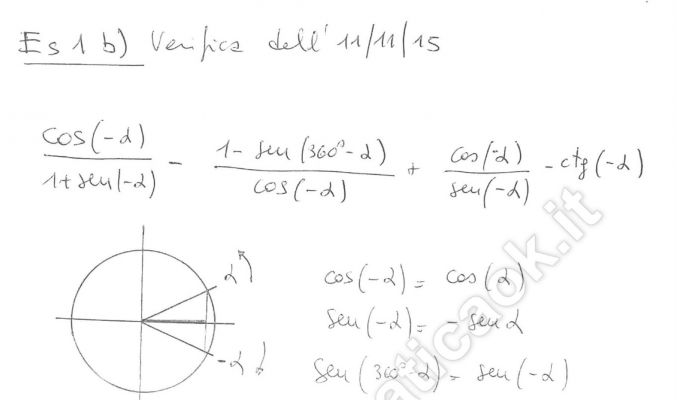 Es 1 b) Verifica dell' 11/11/15
cos(-α)/1+sen(-α) - 1-sen(360°-α)/cos(-α) + cos(-α)/sen(-α) - ctg(-α)
α
cos(-α) = cos(α)
sen(-α) = -sen α
-α
sen(360°-α) = sen(-α)
aticaok.it